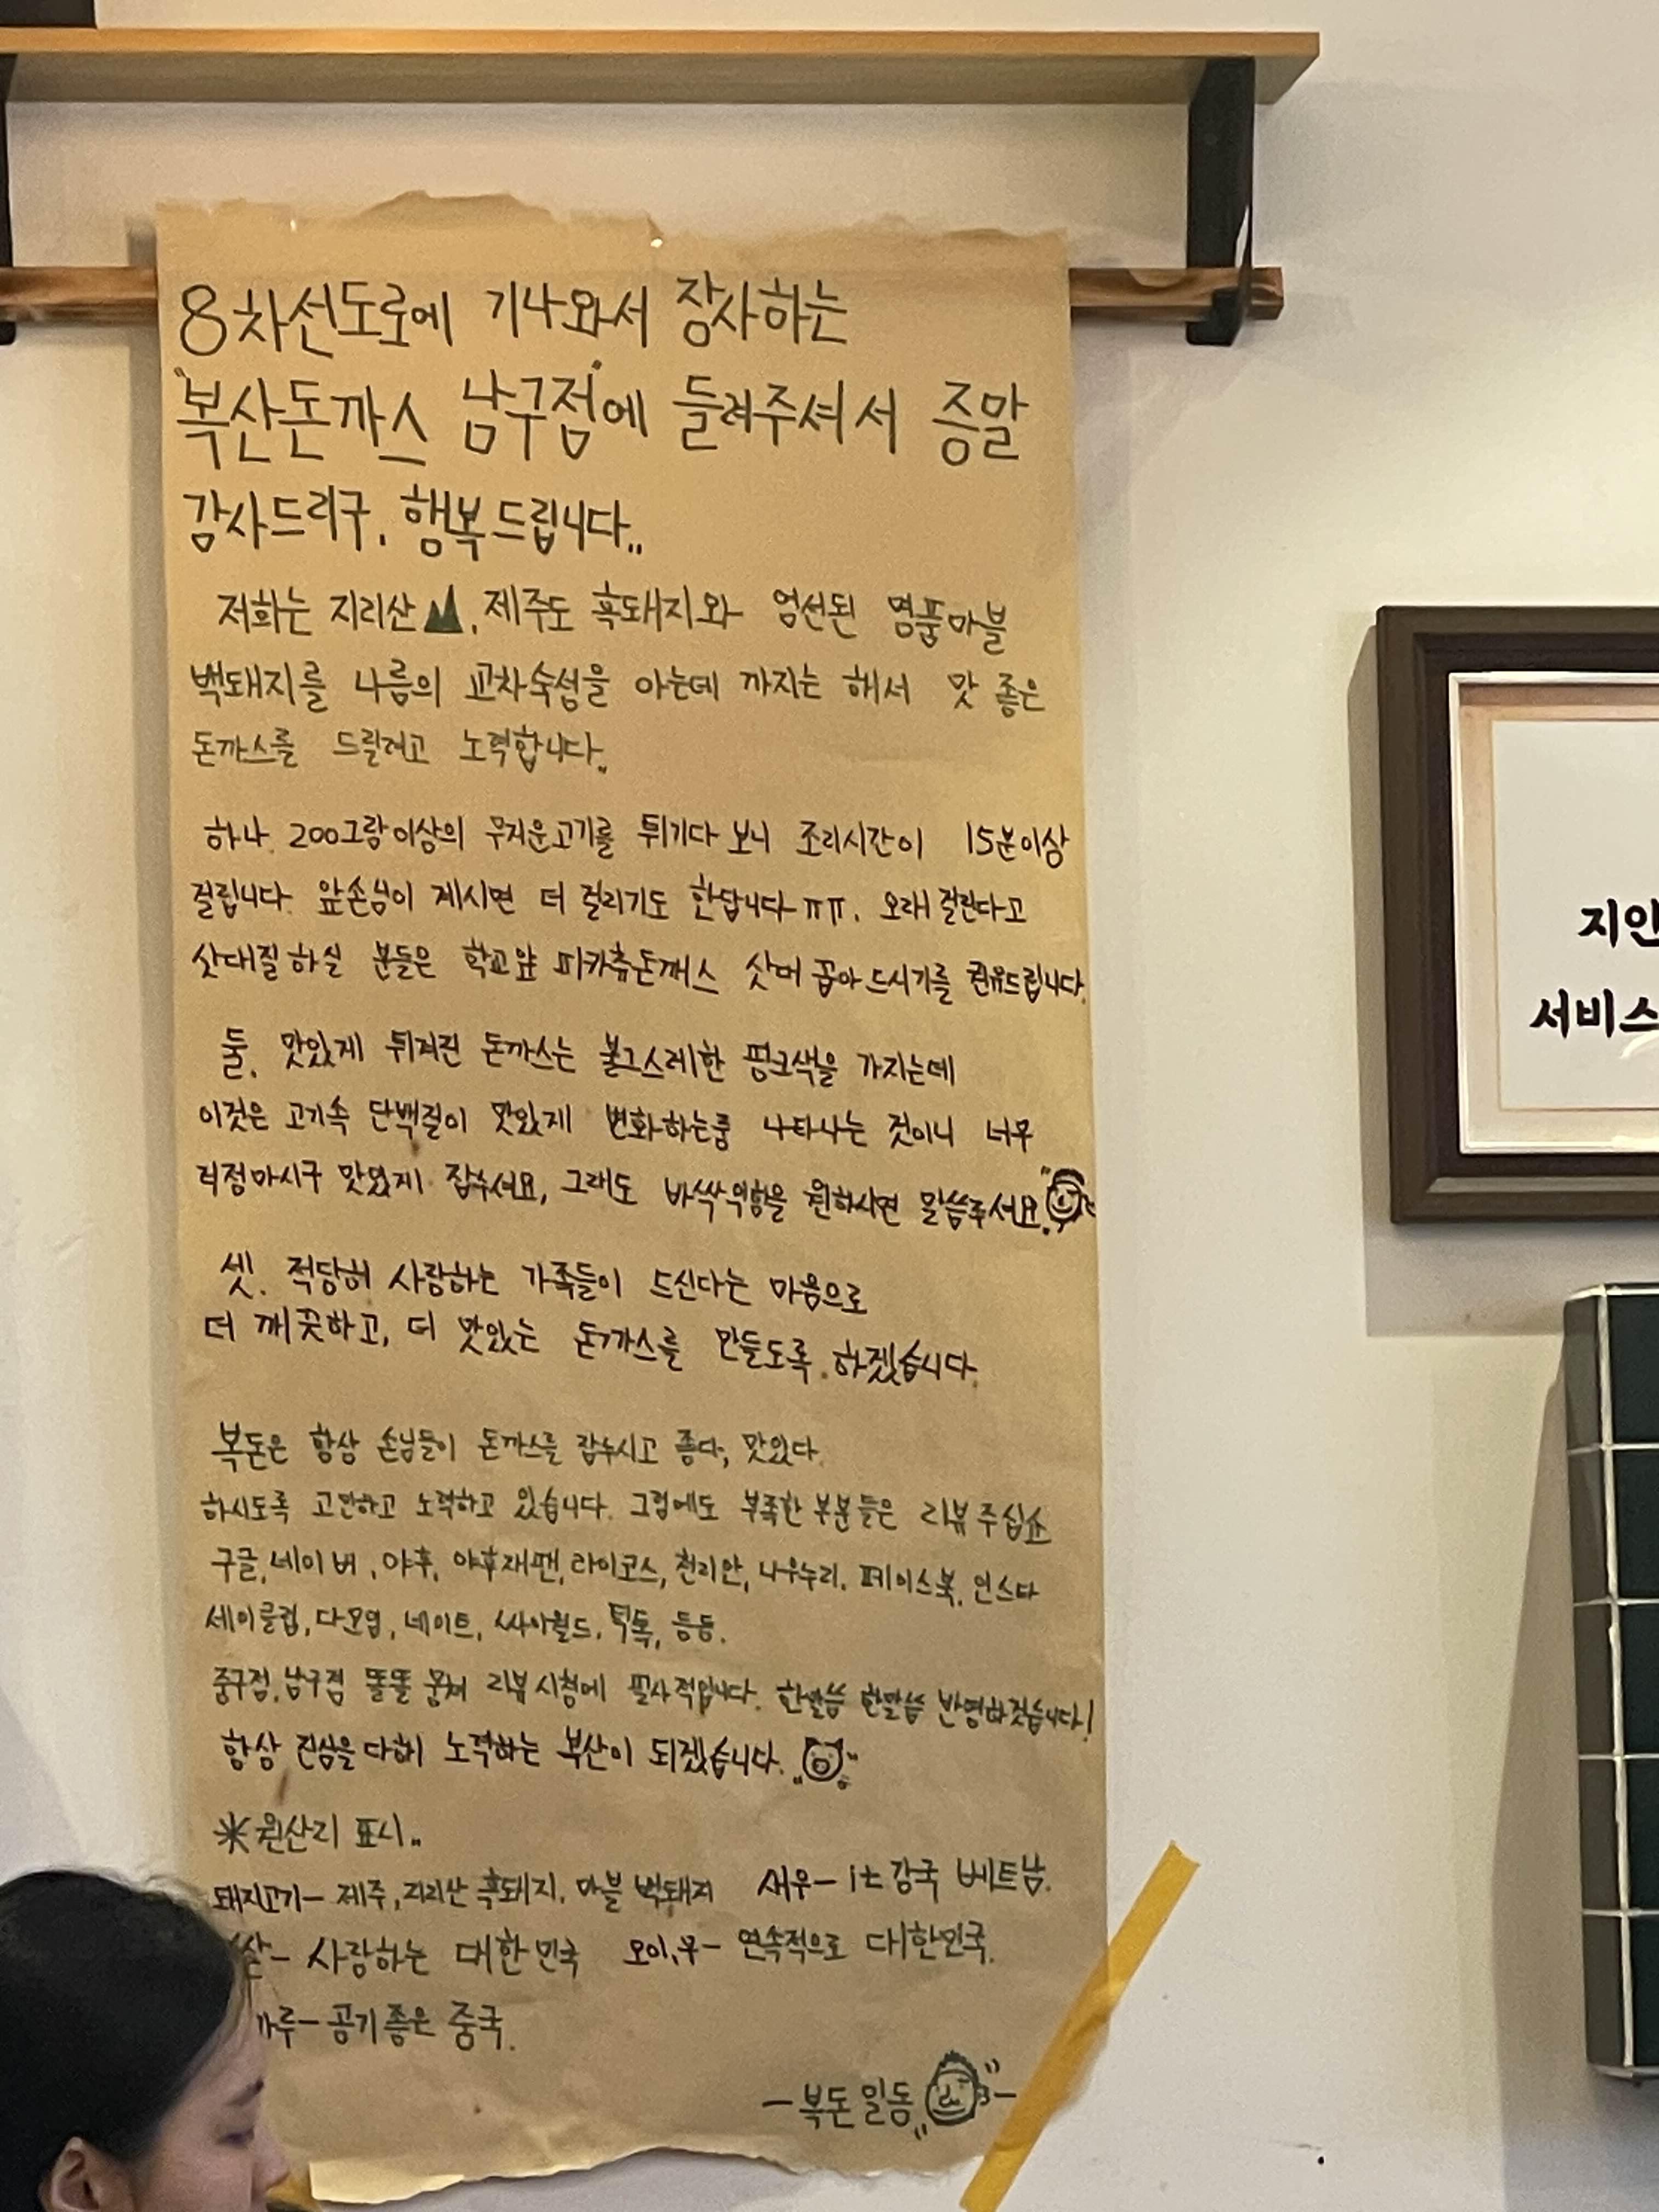 8차선도로에 기나와서 장사하는
"복산돈까스 남구점"에 들려주셔서 증말
감사드리구, 행복드립니다..
저희는 지리산, 제주도 흑돼지와 엄선된 명품마블
백돼지를 나름의 교차숙성을 아는데 까지는 해서 맛 좋은
돈까스를 드릴려고 노력합니다..
하나. 200그람이상의 무거운고기를 튀기다 보니 조리시간이 15분이상
걸립니다. 앞손님이 계시면 더 걸리기도 한답니다ㅠㅠ. 오래걸린다고
삿대질하실 분들은 학교앞 피카츄돈까스 삿며 꼽아드시기를 권유드립니다.
둘. 맛있게 튀겨진 돈까스는 불그스레한 핑크색을 가지는데
이것은 고기속 단백질이 맛있게 변화하는중 나타나는 것이니 너무
걱정마시구 맛있게 잡수셔요, 그래도 바싹익힘을 원하시면 말씀주셔요.
셋. 적당히 사랑하는 가족들이 드신다는 마음으로
더 깨끗하고, 더 맛있는 돈까스를 만들도록 하겠습니다.
복돈은 항상 손님들이 돈까스를 잡수시고 좋다, 맛있다.
하시도록 고민하고 노력하고 있습니다. 그럼에도 부족한부분들은 리뷰주십쇼
구글, 네이버, 야후, 야후재팬, 라이코스, 천리안, 나우누리, 페이스북, 인스타
세이클럽, 다모임, 네이트, 싸이월드, 틱톡, 등등.
중구점, 남구점 똘똘 뭉쳐 리뷰시청에 필사적입니다. 한말씀 한말씀 반영하겠습니다!
항상 진심을다해 노력하는 복산이 되겠습니다.
※원산지 표시..
돼지고기- 제주, 지리산 흑돼지, 마블 백돼지 새우- it 강국 베트남.
쌀- 사랑하는 대한민국 오이,무- 연속적으로 대한민국.
가루-공기좋은 중국.
-복돈일동-
지인
서비스